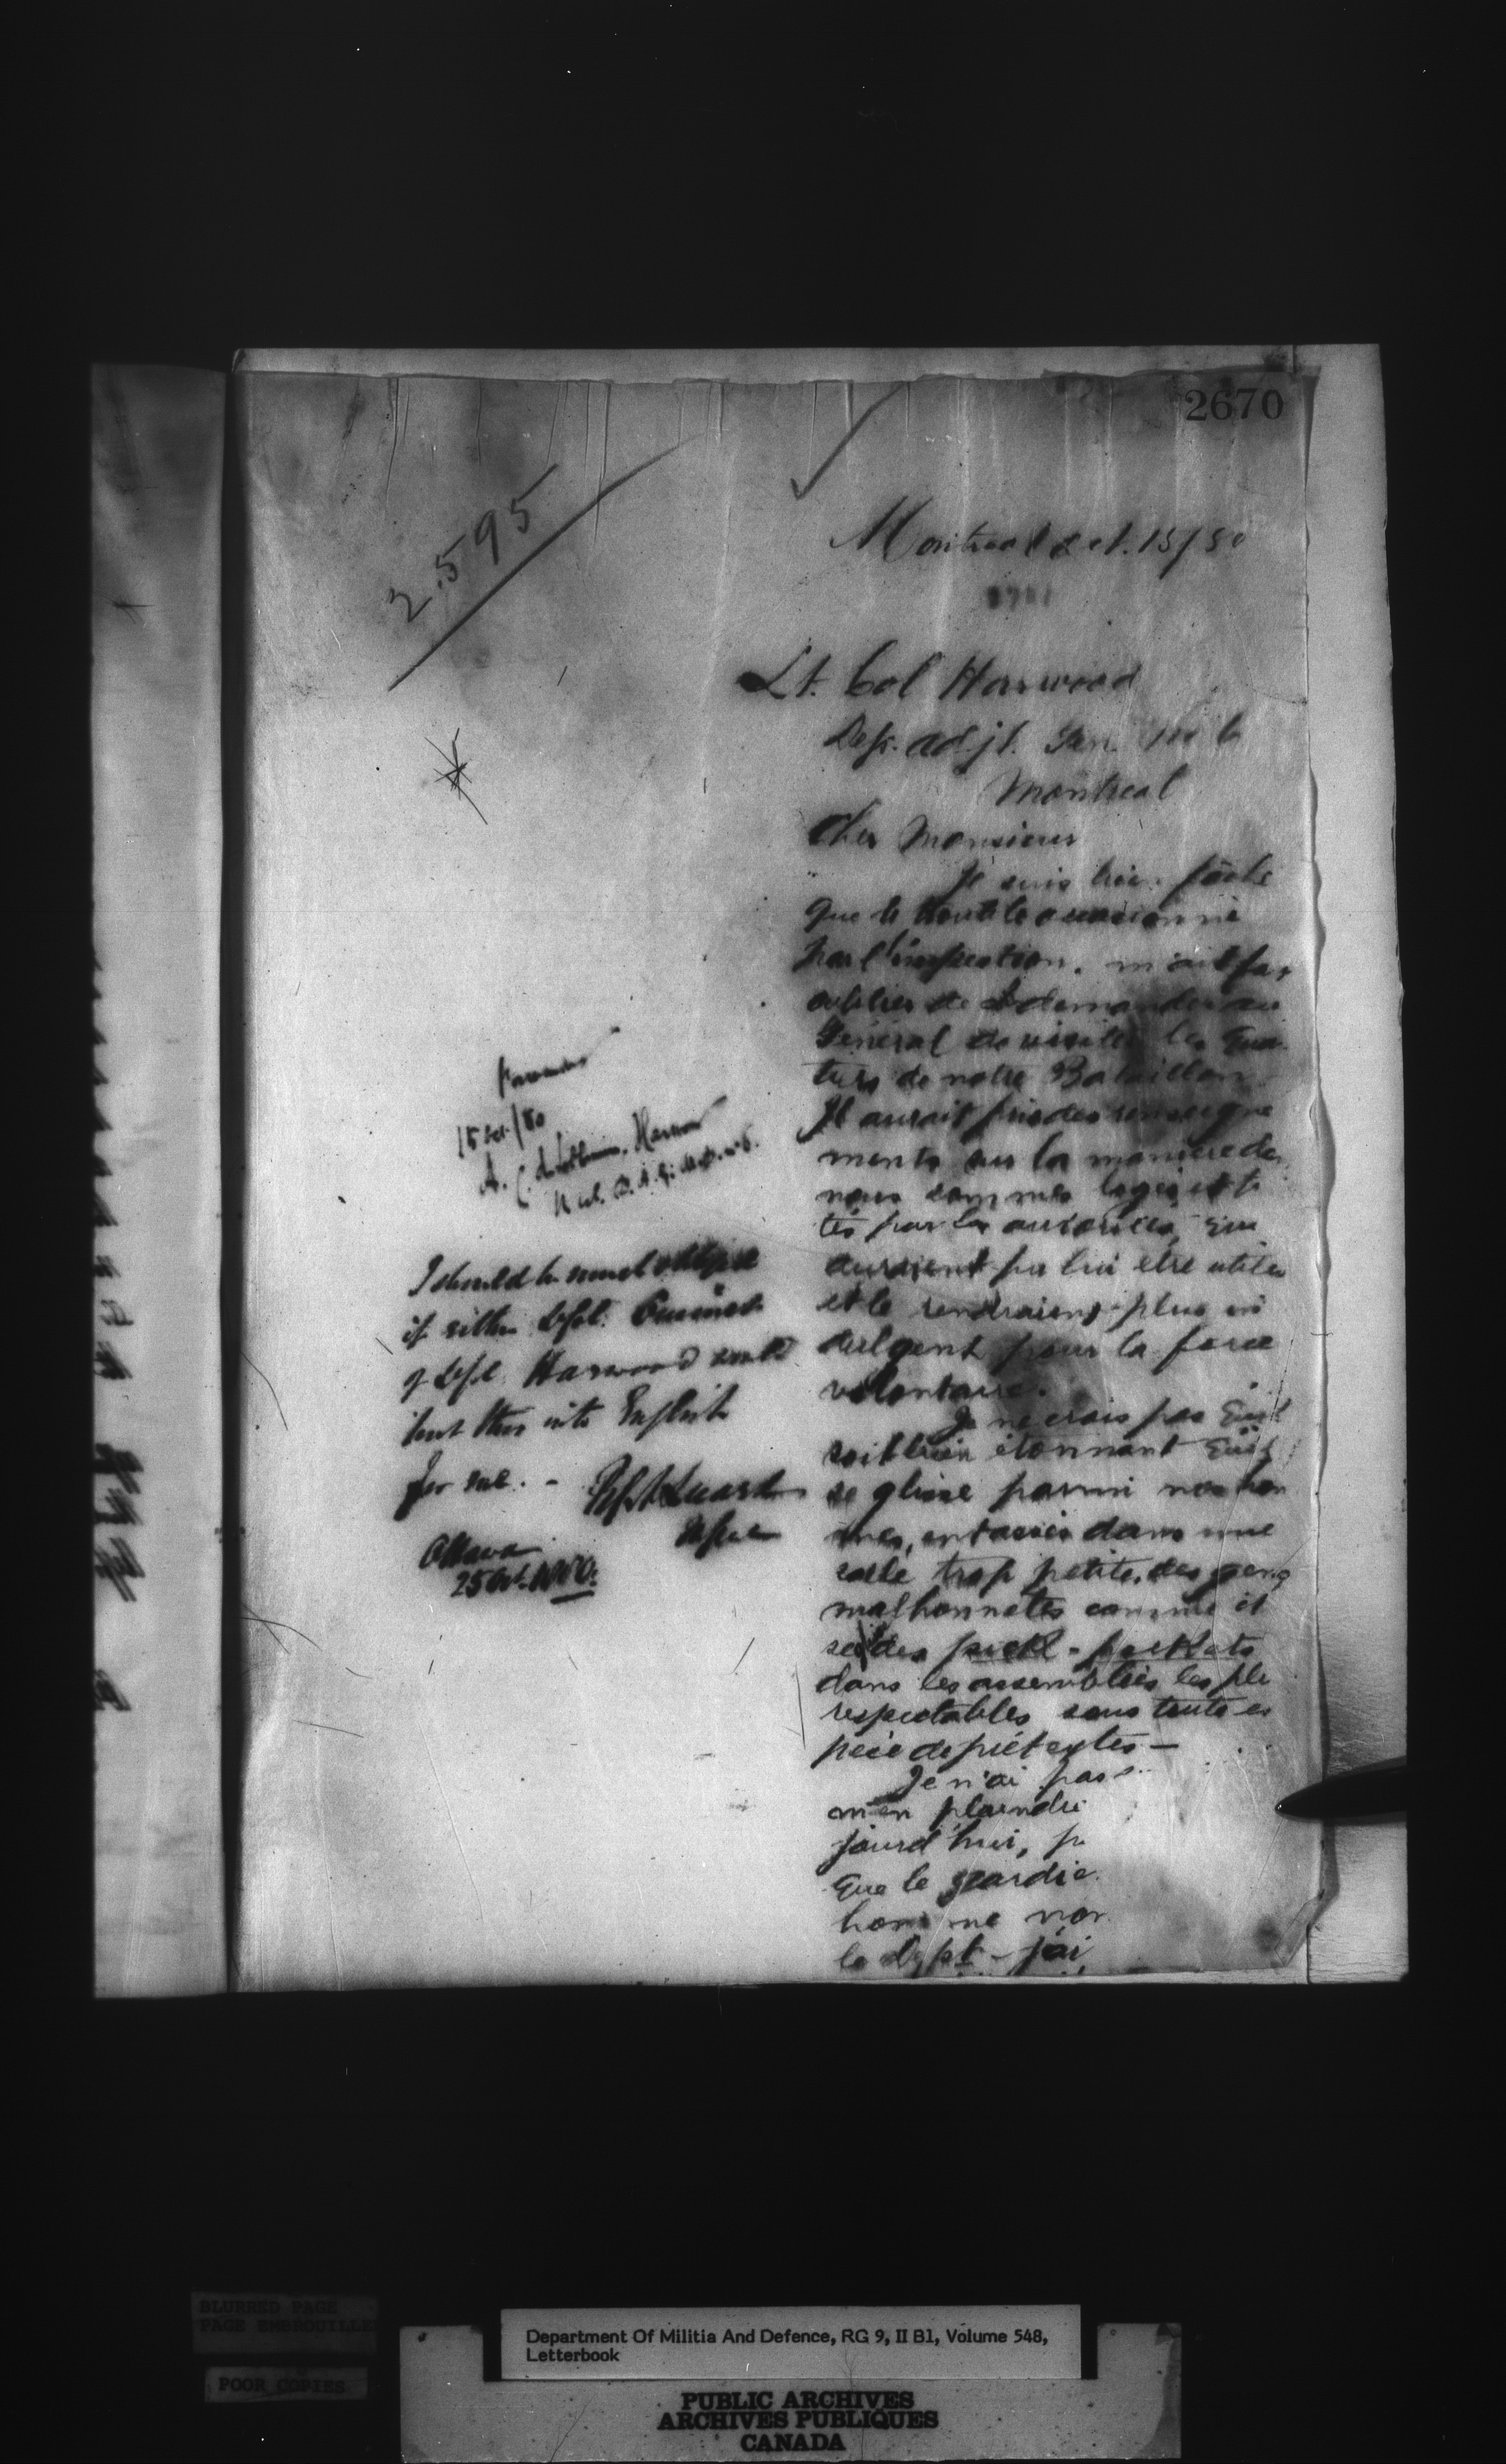 2670
2.595
Montreal Oct. 15/80
Lt. Col Harwood
Dep. Adjt. Gen. No 6
Montreal
Cher Monsieur
Je suis bien fâché
que le trouble occasionné
par l'inspection, m'ait fa
oublier de demander au
Général de visiter les Quar
tiers de notre Bataillon
Il aurait pris des renseigne
ments sur la manière do
nous sommes logés et
tés par les autorités, qui
auraient pu lui être utiles
et le rendraient plus in
dulgent pour la force
volontaire.
Je ne crois pas qu'il
soit bien étonnant qu'il
se glisse parmi nos hom
mes, entassés dans une
salle trop petite, des gens
malhonnêtes comme il
se des pick-pockets
dans les assemblées les plu
respectables sous toute es
pèce de prétextes —
Je n'ai pas
m'en plaindre
jourd'hui, pu
que le gardie
homme nom
le Dept - j'ai
15 Oct/80
A. C. de Lotbinière Harwood
Lt Col. D. A. G. M. D. No 6.
I should be much obliged
if either Lt Col.
or Lt Col Harwood would
put this into English
for me. -
Ottawa
25 Oct. 1880.
BLURRED PAGE
PAGE EMBROUILLEE
POOR COPIES
Department Of Militia And Defence, RG 9, II B1, Volume 548,
Letterbook
PUBLIC ARCHIVES
ARCHIVES PUBLIQUES
CANADA